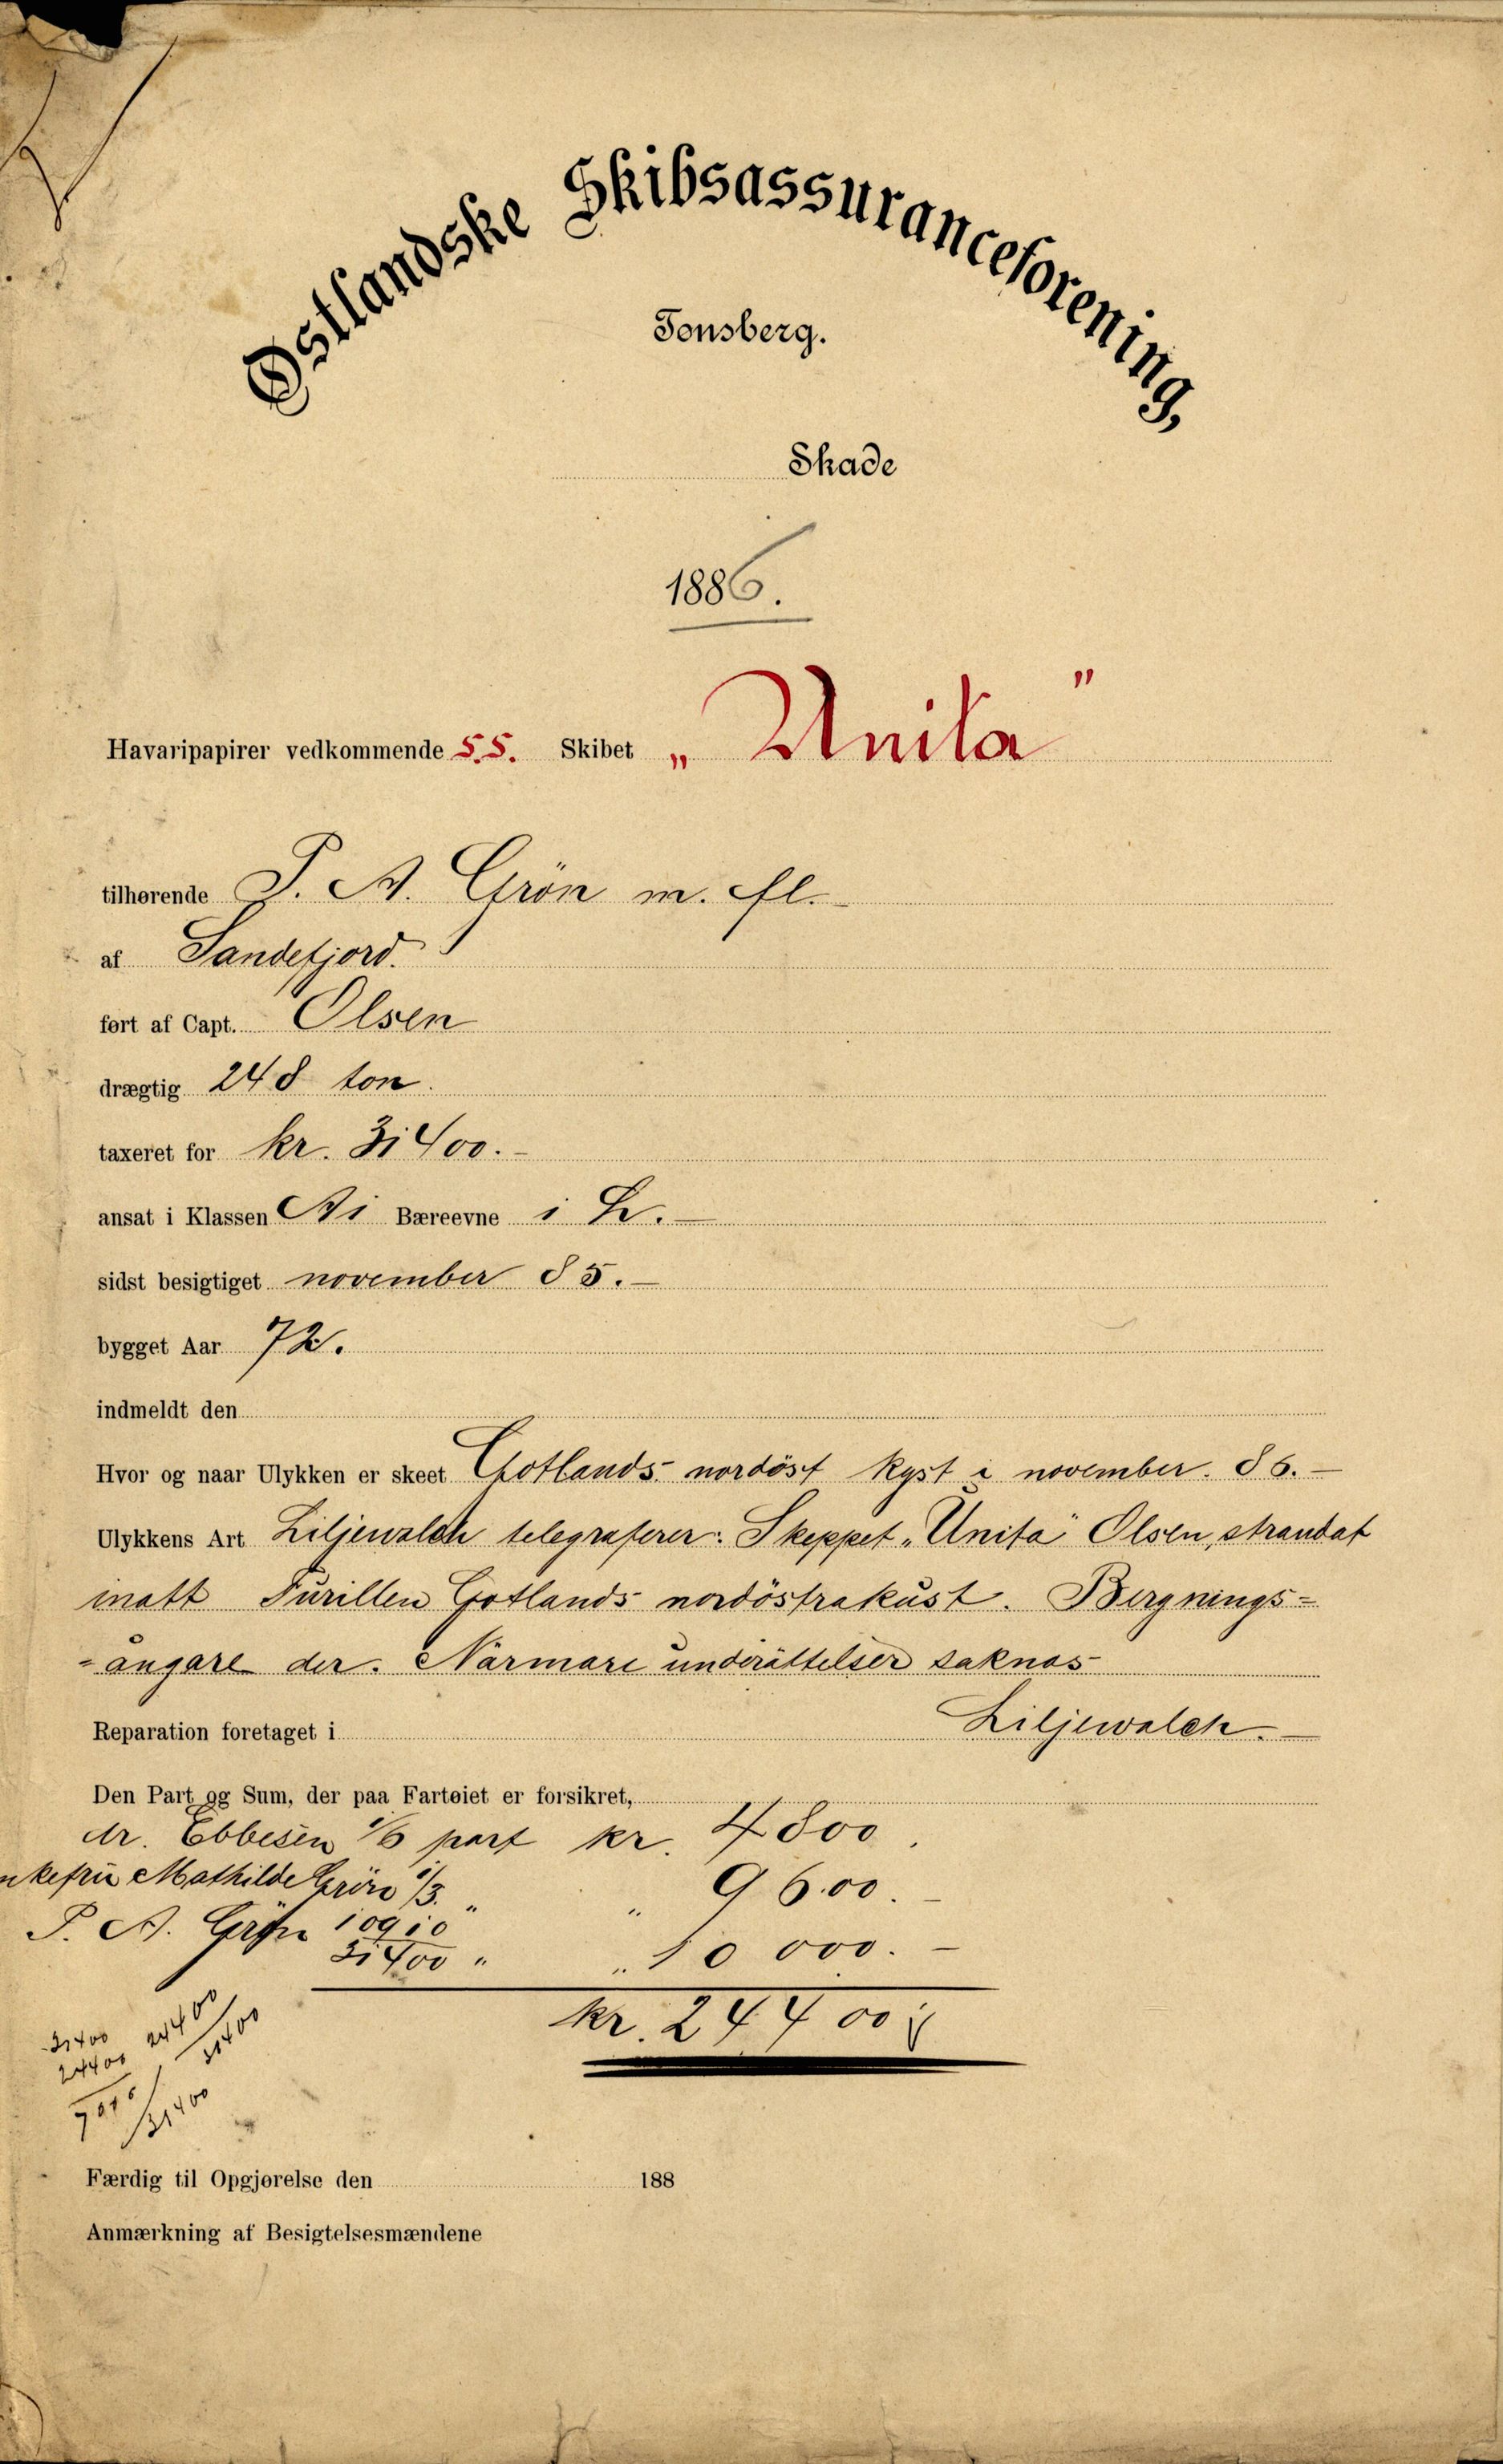 Østlandske Skibsassuranceforening,
Tønsberg.
Skade
1886.
Havaripapirer vedkommende S.S. Skibet „Unita"
tilhørende P. A. Grön m. fl.
af Sandefjord.
ført af Capt. Olsen
drægtig 248 ton.
taxeret for kr. 31400.-
ansat i Klassen A1 Bæreevne 1 L.-
sidst besigtiget november 85.-
bygget Aar 72.
indmeldt den
Hvor og naar Ulykken er skeet Gotlands nordöst kyst i november. 86.-
Ulykkens Art Liljewalch telegraferer: Skeppet „Unita" Olsen, strandat
inatt Furillen Gotlands nordöstrakust. Bergnings=
=ångare der. Närmare underättelser saknas
Liljewalch.-
Reparation foretaget i
Den Part og Sum, der paa Fartøiet er forsikret,
dr. Ebbesen 1/6 part kr. 4800.
nkefru Mathilde Grön 1/3. " " 9600.-
P. A. Grön 10910/31400 " " 10 000.-
kr. 24400
31400 24400/31400
24400
7000/31400
Færdig til Opgjørelse den 188
Anmærkning af Besigtelsesmændene